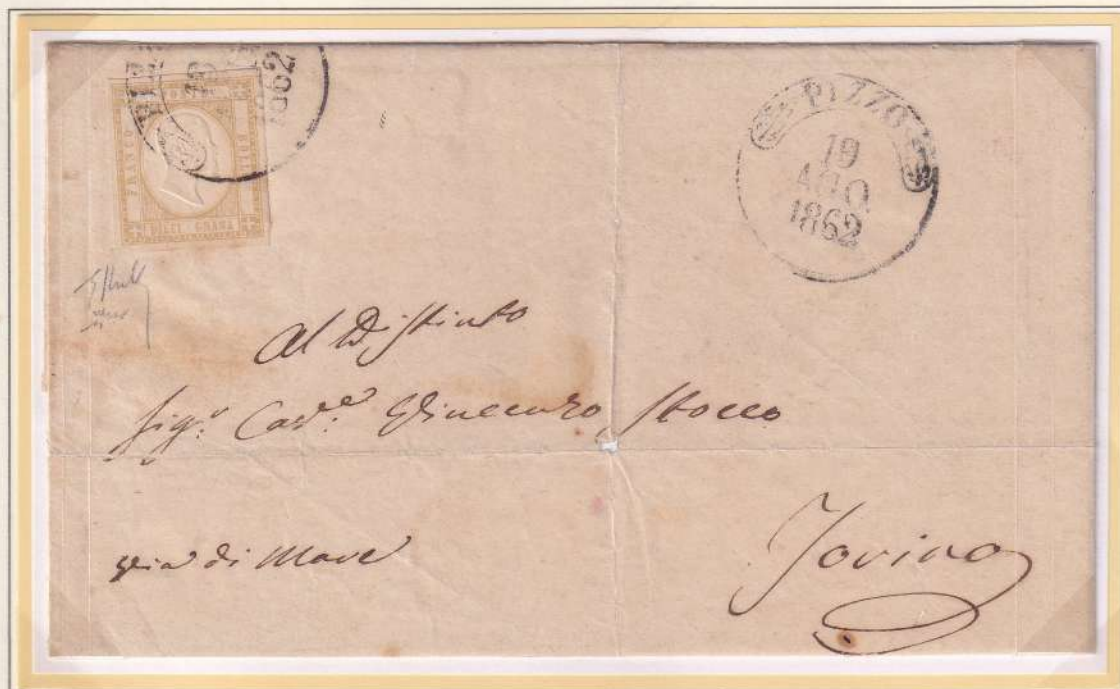 FRANCO
DIECI GRANA
1862
PIZZO
19
AGO
1862
Al Distinto
Sig.r Cav.e Vincenzo Stocco
via di Mare
Torino